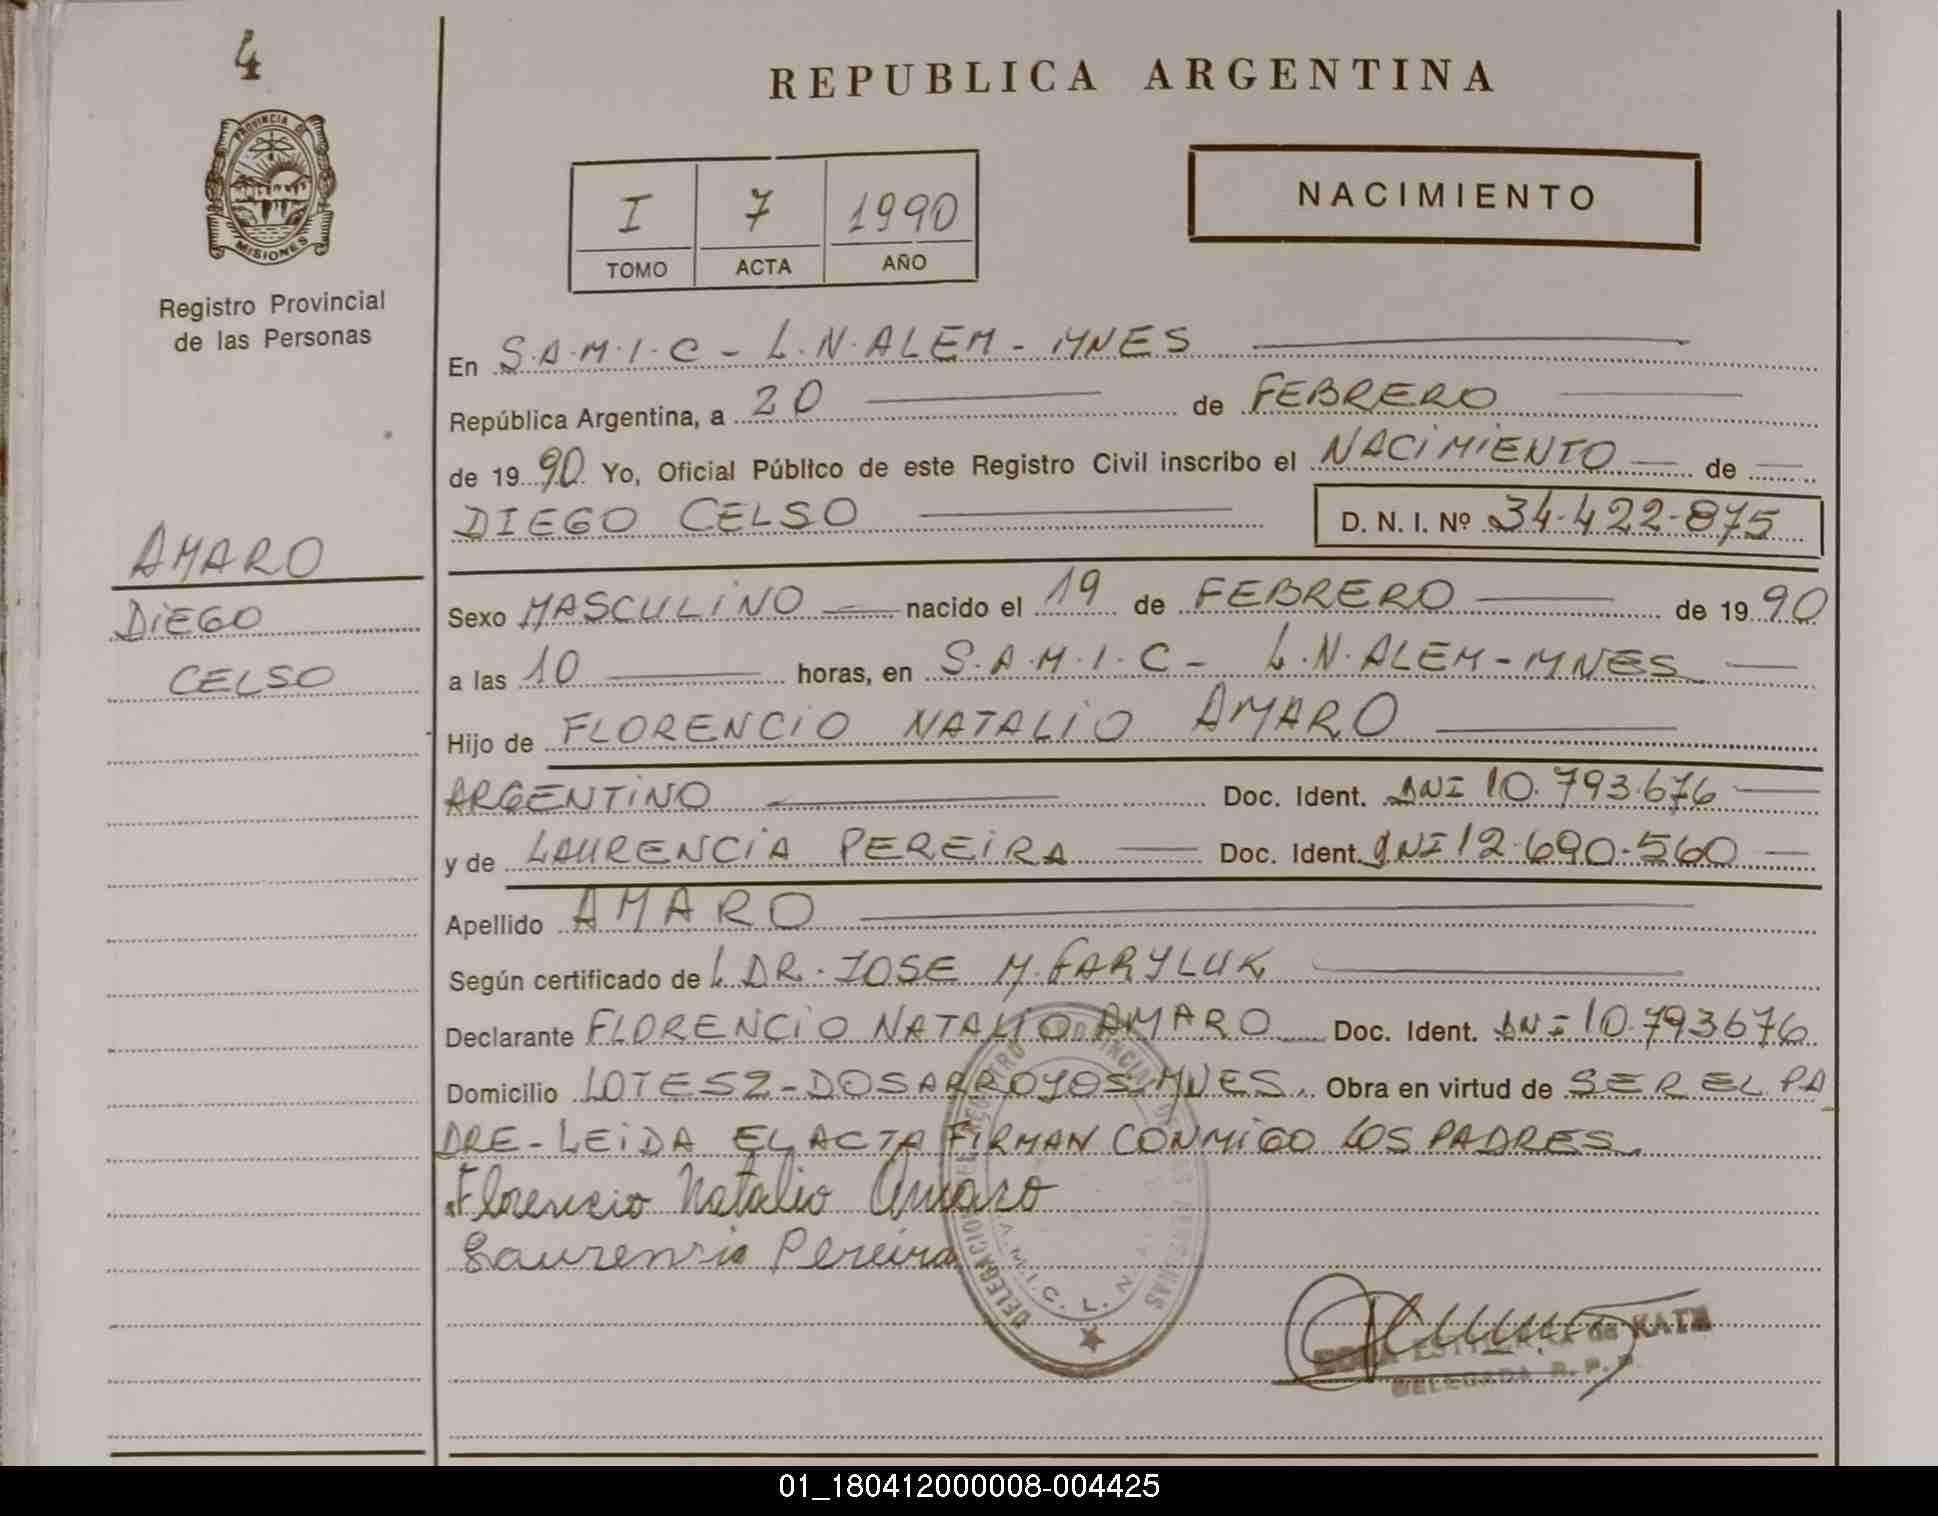 4
PROVINCIA DE
MISIONES
Registro Provincial
de las Personas
AMARO
DIEGO
CELSO
REPUBLICA ARGENTINA
I 7 1990
TOMO ACTA AÑO
NACIMIENTO
En S.A.M.I.C - L.N.ALEM - MNES
República Argentina, a 20 de FEBRERO
de 19 90 Yo, Oficial Público de este Registro Civil inscribo el NACIMIENTO de
DIEGO CELSO D. N. I. Nº 34.422.875
Sexo MASCULINO nacido el 19 de FEBRERO de 19 90
a las 10 horas, en S.A.M.I.C - L.N.ALEM - MNES
Hijo de FLORENCIO NATALIO AMARO
ARGENTINO Doc. Ident. DNI 10.793.676
y de LAURENCIA PEREIRA Doc. Ident. DNI 12.690.560
Apellido AMARO
Según certificado de L DR. JOSE M. FARYLUK
Declarante FLORENCIO NATALIO AMARO Doc. Ident. DNI 10.793676
Domicilio LOTE 52 - DOS ARROYOS MNES. Obra en virtud de SER EL PA
DRE - LEIDA EL ACTA FIRMAN CONMIGO LOS PADRES
Florencio Natalio Amaro
Laurensia Pereira
de KATZ
DELEGADA R. P. P.
01_180412000008-004425